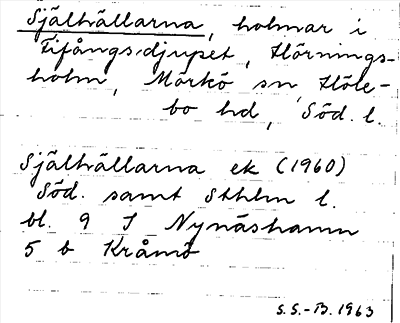 Själhällarna, holmar i
Fifångsdjupet, Hörnings-
holm, Mörkö sn, Höle-
bo hd, Söd. l.
Själhällarna ek (1960)
Söd. samt Sthlm l.
bl. 9 I Nynäshamn
5 b Kråmö
S.S.-B. 1963